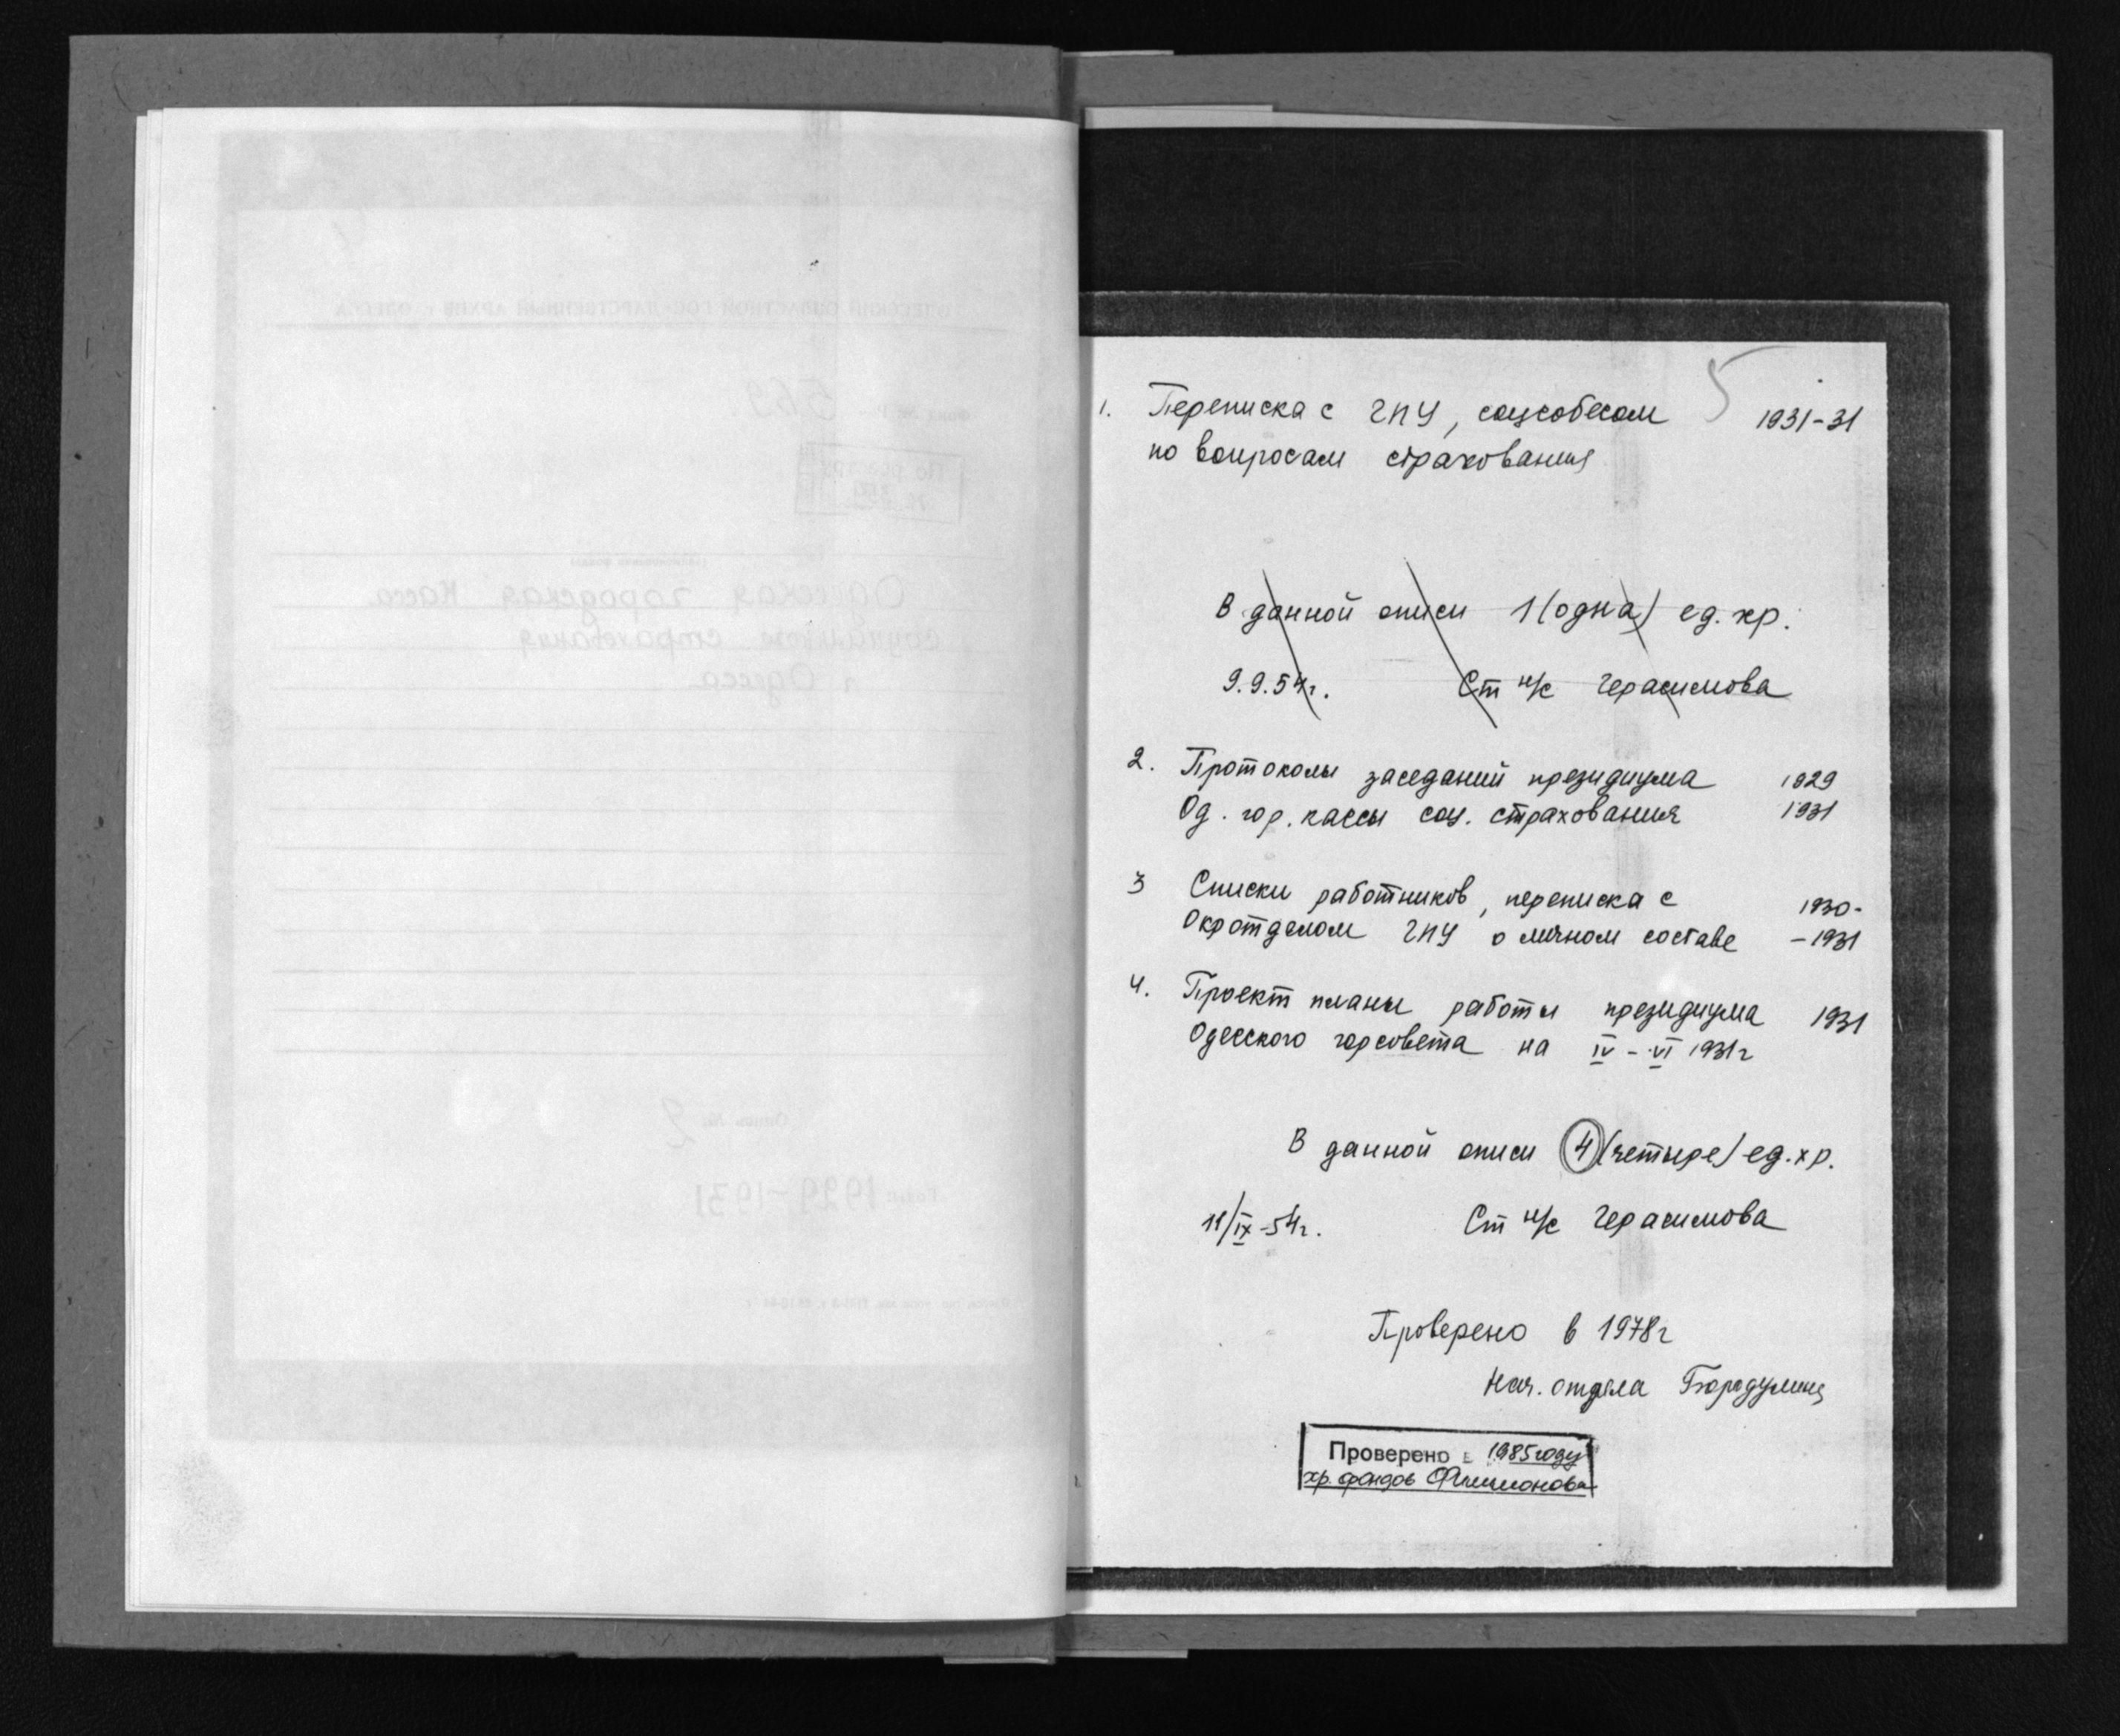 5
1. Переписка с ГПУ, соцсобесом 1931-31
по вопросам страхования
В данной описи 1 (одна) ед. хр.
9.9.54г. Ст н/с Герасимова
2. Протоколы заседаний президиума 1929
Од. гор. кассы соц. страхования 1931
3 Списки работников, переписка с 1930-
Окротделом ГПУ о личном составе -1931
4. Проект планы работы президиума 1931
Одесского горсовета на IV - VI 1931г
В данной описи 4 (четыре) ед. хр.
11/IX-54г. Ст н/с Герасимова
Проверено в 1978г
Нач. отдела
Проверено в 1985 году
хр. фондов
ОДЕССКИЙ ОБЛАСТНОЙ ГОСУДАРСТВЕННЫЙ АРХИВ г. ОДЕССА
Фонд № Р 569
Одесская городская касса
социального страхования
г. Одесса
Опись № 2
Годы 1929-1931